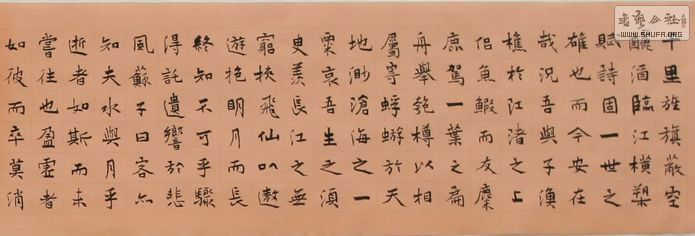 千里旌旗蔽空
釃酒臨江橫槊
賦詩固一世之
雄也而今安在
哉況吾與子漁
樵於江渚之上
侶魚鰕而友麋
鹿駕一葉之扁
舟舉匏樽以相
屬寄蜉蝣於天
地渺滄海之一
粟哀吾生之須
臾羨長江之無
窮挾飛仙以遨
遊抱明月而長
終知不可乎驟
得託遺響於悲
風蘇子曰客亦
知夫水與月乎
逝者如斯而未
嘗往也盈虛者
如彼而卒莫消
书艺公社
WWW.SHUFA.ORG